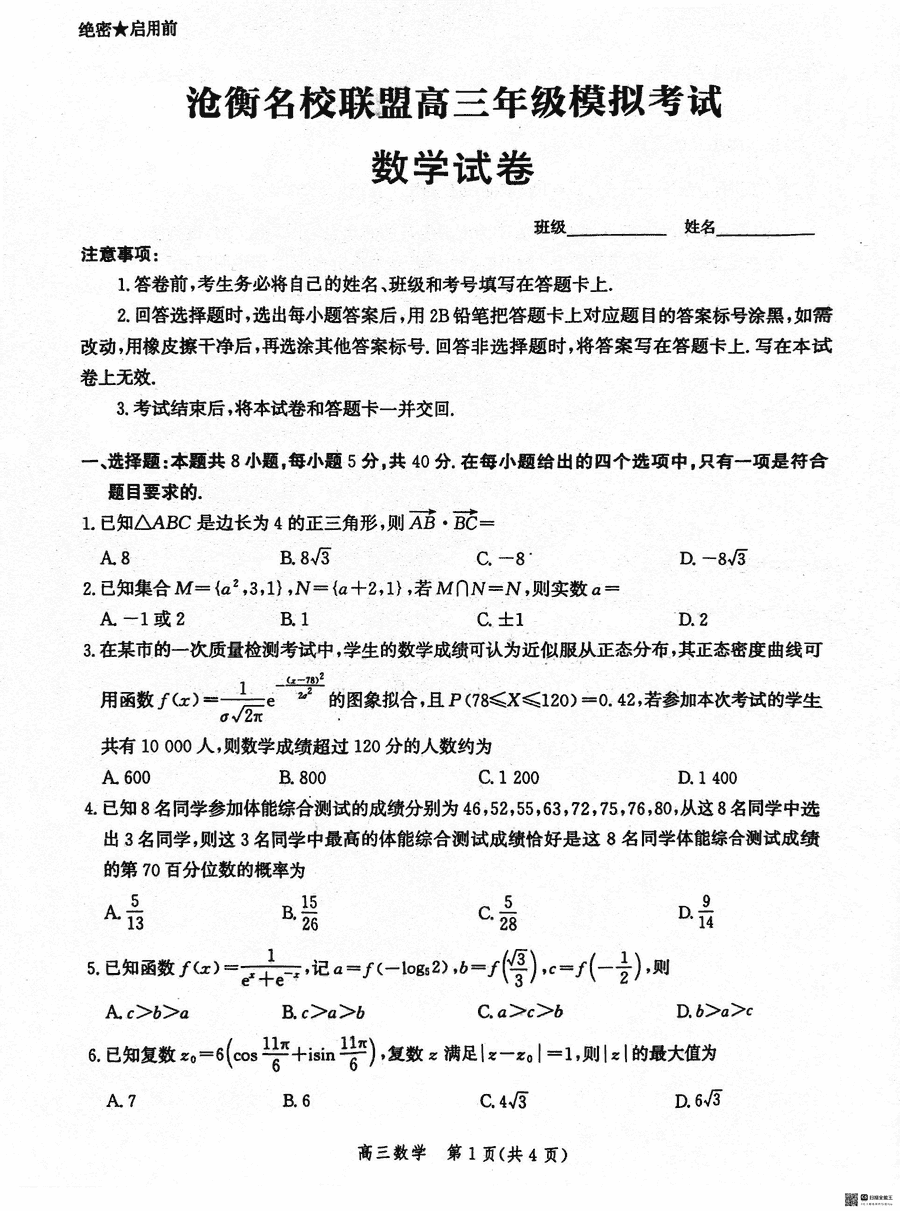 绝密★启用前
沧衡名校联盟高三年级模拟考试
数学试卷
班级__________ 姓名__________
注意事项:
1.答卷前,考生务必将自己的姓名、班级和考号填写在答题卡上.
2.回答选择题时,选出每小题答案后,用2B铅笔把答题卡上对应题目的答案标号涂黑,如需
改动,用橡皮擦干净后,再选涂其他答案标号.回答非选择题时,将答案写在答题卡上.写在本试
卷上无效.
3.考试结束后,将本试卷和答题卡一并交回.
一、选择题:本题共8小题,每小题5分,共40分.在每小题给出的四个选项中,只有一项是符合
题目要求的.
1.已知△ABC是边长为4的正三角形,则$\overrightarrow{AB}\cdot\overrightarrow{BC}$=
A.8 B.8√3 C.-8 D.-8√3
2.已知集合M={a²,3,1},N={a+2,1},若M∩N=N,则实数a=
A.-1或2 B.1 C.±1 D.2
3.在某市的一次质量检测考试中,学生的数学成绩可认为近似服从正态分布,其正态密度曲线可
用函数$f(x)=\frac{1}{\sigma\sqrt{2\pi}}e^{-\frac{(x-78)^2}{2\sigma^2}}$的图象拟合,且P(78≤X≤120)=0.42,若参加本次考试的学生
共有10 000人,则数学成绩超过120分的人数约为
A.600 B.800 C.1 200 D.1 400
4.已知8名同学参加体能综合测试的成绩分别为46,52,55,63,72,75,76,80,从这8名同学中选
出3名同学,则这3名同学中最高的体能综合测试成绩恰好是这8名同学体能综合测试成绩
的第70百分位数的概率为
A.$\frac{5}{13}$ B.$\frac{15}{26}$ C.$\frac{5}{28}$ D.$\frac{9}{14}$
5.已知函数$f(x)=\frac{1}{e^x+e^{-x}}$,记$a=f(-\log_5 2)$,$b=f\left(\frac{\sqrt{3}}{3}\right)$,$c=f\left(-\frac{1}{2}\right)$,则
A.c>b>a B.c>a>b C.a>c>b D.b>a>c
6.已知复数$z_0=6\left(\cos\frac{11\pi}{6}+i\sin\frac{11\pi}{6}\right)$,复数z满足|z-z₀|=1,则|z|的最大值为
A.7 B.6 C.4√3 D.6√3
高三数学 第1页(共4页)
扫描全能王